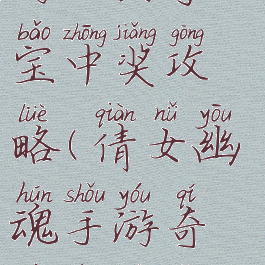 bǎo zhōng jiǎng gōng
宝中奖攻
lüè qiàn nǚ yōu
略(倩女幽
hún shǒu yóu qí
魂手游奇